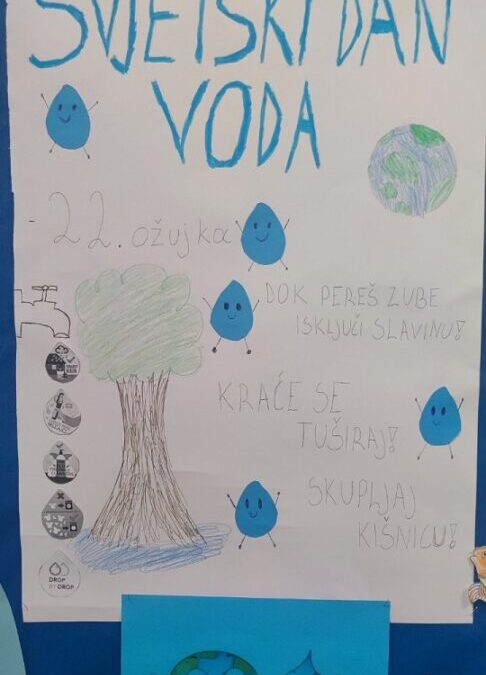 SVJETSKI DAN
VODA
- 22. ožujka
DOK PEREŠ ZUBE
ISKLJUČI SLAVINU!
KRAĆE SE
TUŠIRAJ!
SKUPLJAJ
KIŠNICU!
DROP
BY DROP